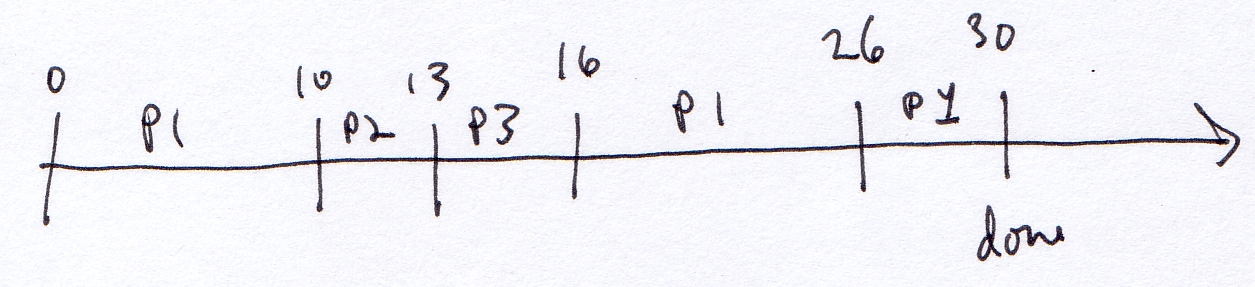 0 10 13 16 26 30
P1 P2 P3 P1 P1
done